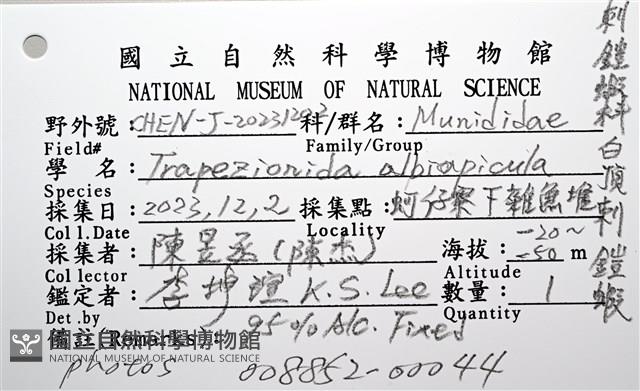 國立自然科學博物館
NATIONAL MUSEUM OF NATURAL SCIENCE
野外號：CHEN-J-20231202 科/群名：Munididae
Field# Family/Group
學 名：Trapezionida albiapicula
Species
採集日：2023,12,2 採集點：蚵仔寮下雜魚堆
Coll.Date Locality
採集者：陳昱丞(陳杰) 海拔：-20~-50 m
Collector Altitude
鑑定者：李坤瑄 K.S. Lee 數量：1
Det.by Quantity
(Remarks)：95% Alc. Fixed
國立自然科學博物館
NATIONAL MUSEUM OF NATURAL SCIENCE
photos 008852-00044
刺鎧蝦科 白頂刺鎧蝦